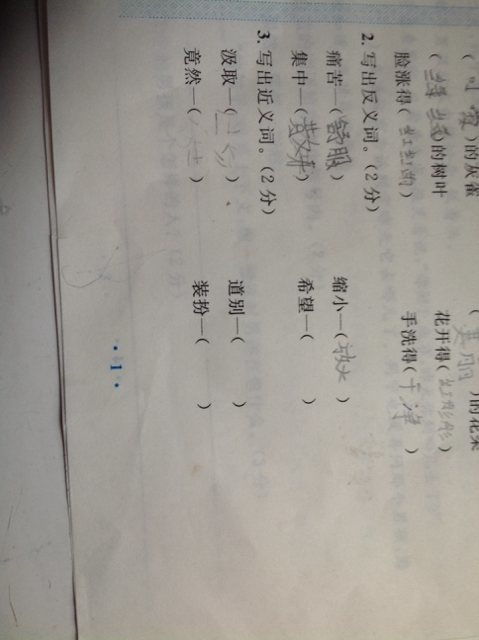 ( )的灰雀 (美丽)的花朵
( )的树叶 花开得(红彤彤)
脸涨得(红红的) 手洗得(干净)
2. 写出反义词。(2分)
痛苦—(舒服) 缩小—(放大)
集中—( ) 希望—( )
3. 写出近义词。(2分)
汲取—( ) 道别—( )
竟然—( ) 装扮—( )
·1·